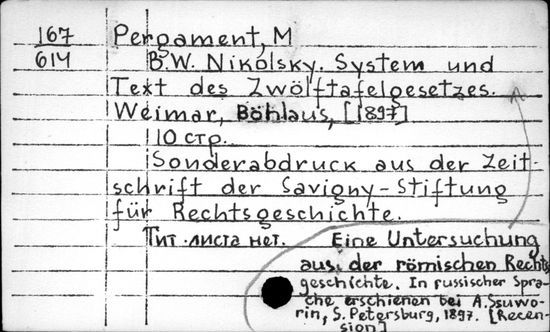 167
614
Pergament, M
B.W. Nikolsky. System und
Text des Zwölftafelgesetzes.
Weimar, Böhlaus, [1897]
10 стр.
Sonderabdruck aus der Zeit-
schrift der Savigny-Stiftung
für Rechtsgeschichte.
Тит. листа нет. Eine Untersuchung
aus der römischen Rechts
geschichte. In russischer Spra-
che erschienen bei A. Ssuwo-
rin, S. Petersburg, 1897. [Recen-
sion]